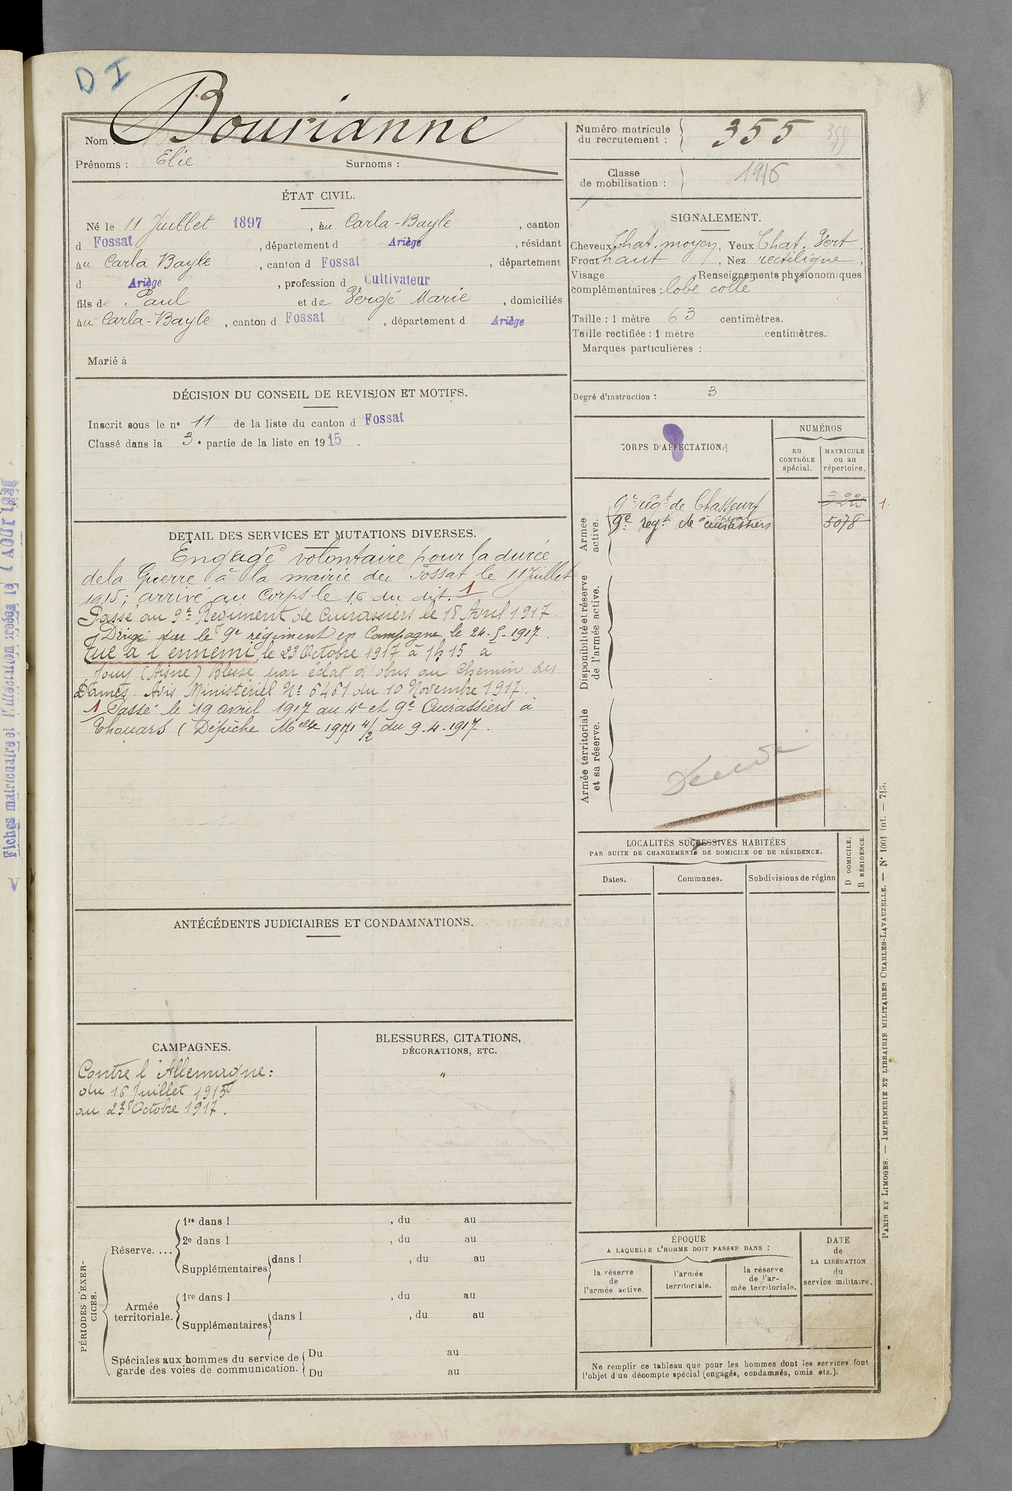 D I
Nom Bourianne
Prénoms : Elie Surnoms :
ÉTAT CIVIL.
Né le 11 Juillet 1897, au Carla-Bayle, canton
d Fossat, département d Ariège, résidant
au Carla Bayle, canton d Fossat, département
d Ariège, profession d Cultivateur
fils de Paul et de Vergé Marie, domiciliés
au Carla-Bayle, canton d Fossat, département d Ariège
Marié à
DÉCISION DU CONSEIL DE REVISION ET MOTIFS.
Inscrit sous le n° 11 de la liste du canton d Fossat
Classé dans la 3e partie de la liste en 1915.
DETAIL DES SERVICES ET MUTATIONS DIVERSES.
Engagé volontaire pour la durée
de la Guerre à la mairie du Fossat le 11 Juillet
1915; arrivé au Corps le 16 du dit. 1
Passé au 9e Régiment de Cuirassiers le 18 Avril 1917
Dirigé sur le 9e régiment en Campagne le 24-5-1917.
Tué à l'ennemi le 23 Octobre 1917 à 1h15 à
Jouy (Aisne) Blessé par éclat d'obus au Chemin des
Dames. Avis Ministériel No 6461 du 10 Novembre 1917.
1 Passé le 19 avril 1917 au 4e et 9e Cuirassiers à
Thouars (Dépêche Melle 19171 2/2 du 9.4.1917.
ANTÉCÉDENTS JUDICIAIRES ET CONDAMNATIONS.
CAMPAGNES.
Contre l'Allemagne:
du 16 Juillet 1915
au 23 Octobre 1917.
BLESSURES, CITATIONS,
DÉCORATIONS, ETC.
"
PÉRIODES D'EXERCICES.
Réserve....
1re dans l , du au
2e dans l , du au
Supplémentaires dans l , du au
Armée territoriale.
1re dans l , du au
Supplémentaires dans l , du au
Spéciales aux hommes du service de
garde des voies de communication.
Du au
Du au
Numéro matricule
du recrutement : 355
Classe
de mobilisation : 1916
SIGNALEMENT.
Cheveux Chat. moyen, Yeux Chat. Vert.
Front haut, Nez rectiligne,
Visage , Renseignements physionomiques
complémentaires : lobe collé
Taille : 1 mètre 63 centimètres.
Taille rectifiée : 1 mètre centimètres.
Marques particulières :
Degré d'instruction : 3
CORPS D'AFFECTATION.
NUMÉROS
AU CONTRÔLE spécial.
MATRICULE ou au répertoire.
Armée active.
9e rég.t de Chasseurs
9e reg.t de cuirassiers 5078
1.
Disponibilité et réserve de l'armée active.
Armée territoriale et sa réserve.
LOCALITÉS SUCCESSIVES HABITÉES
PAR SUITE DE CHANGEMENTS DE DOMICILE OU DE RÉSIDENCE.
Dates. Communes. Subdivisions de région
D DOMICILE.
R RÉSIDENCE.
ÉPOQUE
A LAQUELLE L'HOMME DOIT PASSER DANS :
la réserve de l'armée active.
l'armée territoriale.
la réserve de l'armée territoriale.
DATE
de
LA LIBÉRATION
du
service militaire.
Ne remplir ce tableau que pour les hommes dont les services font
l'objet d'un décompte spécial (engagés, condamnés, omis, etc.).
PARIS ET LIMOGES. — IMPRIMERIE ET LIBRAIRIE MILITAIRES CHARLES-LAVAUZELLE. — N° 1001 int. — 715.